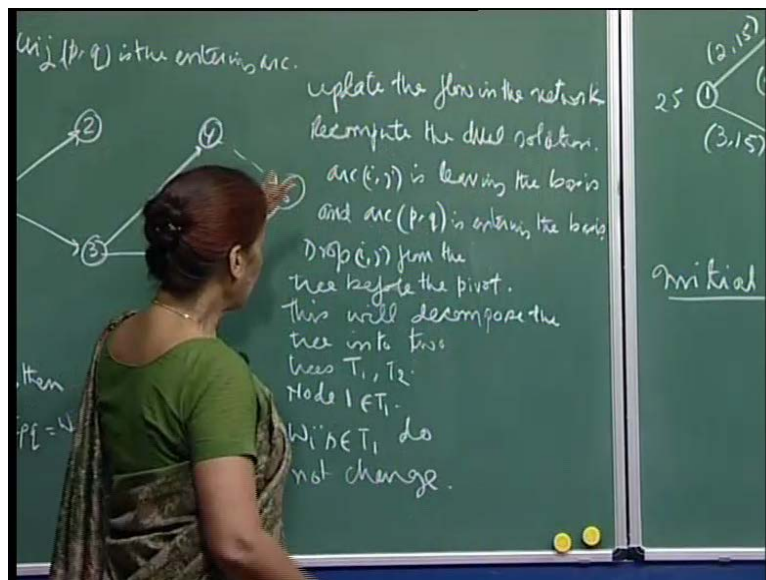 (p,q) is the entering arc.
2
4
3
then
pq = w
update the flow in the network
Recompute the dual solution.
arc (i,j) is leaving the basis
and arc (p,q) is entering the basis
Drop (i,j) from the
tree before the pivot.
this will decompose the
tree into two
trees T1, T2.
Node 1 ∈ T1.
Wi's ∈ T1 do
not change.
(2,15)
25 1
(3,15)
Initial